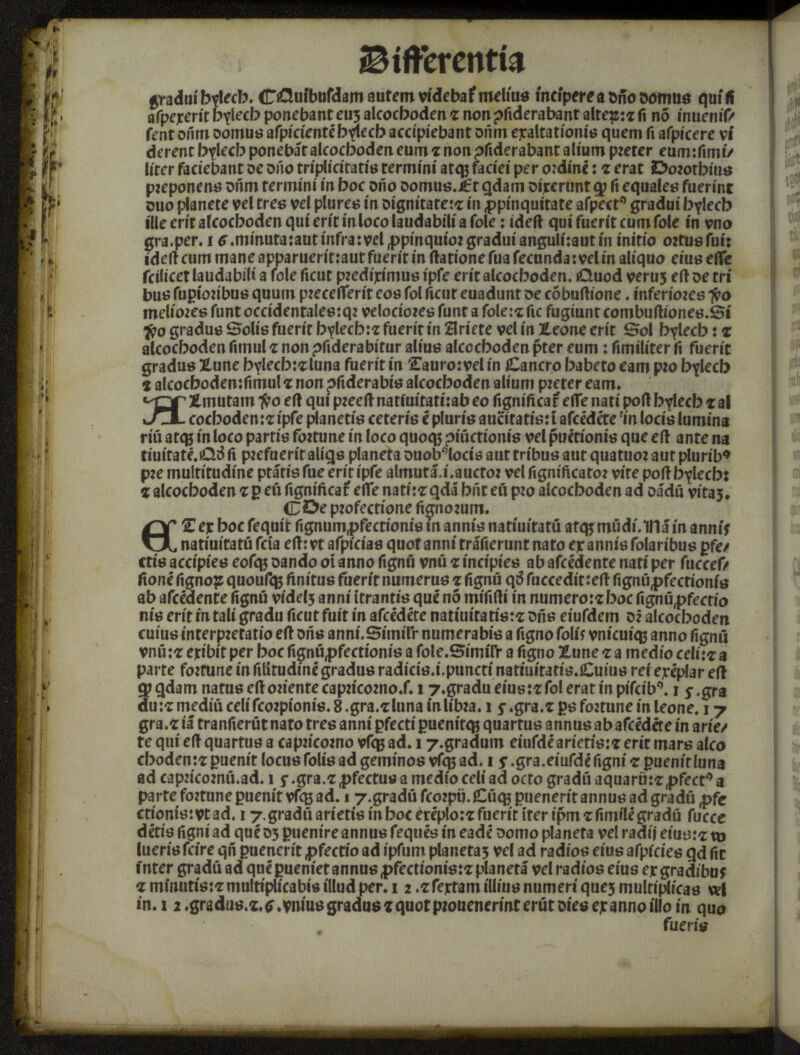 Differentia
gradui hylech. ¶Quibusdam autem videbat melius incipere a dño domus qui si
aspexerit hylech ponebant euȝ alcochoden ⁊ non ꝯsiderabant alteꝝ:⁊ si nō inuenis⸗
sent dñm domus aspicientē hylech accipiebant dñm exaltationis quem si aspicere vi
derent hylech ponebāt alcochoden eum ⁊ non ꝯsiderabant alium preter eum:simi⸗
liter faciebant de dño triplicitatis termini atqȝ faciei per ordinē: ⁊ erat Dorothius
preponens dñm termini in hoc dño domus. Et qdam dixerunt ꝙ si equales fuerint
duo planete vel tres vel plures in dignitate:⁊ in ꝓpinquitate aspectꝰ gradui hylech
ille erit alcochoden qui erit in loco laudabili a sole: idest qui fuerit cum sole in vno
gra.per. 16.minuta:aut infra:vel ꝓpinquior gradui anguli:aut in initio ortus sui:
idest cum mane apparuerit:aut fuerit in statione sua secunda:vel in aliquo eius esse
scilicet laudabili a sole sicut prediximus ipse erit alcochoden. Quod veruȝ est de tri
bus supioribus quum precesserit eos sol sicut euadunt de cōbustione. inferiores ꝟo
meliores sunt occidentales:qꝛ velociores sunt a sole:⁊ sic fugiunt combustiones. Si
ꝟo gradus Solis fuerit hylech:⁊ fuerit in Ariete vel in Leone erit Sol hylech: ⁊
alcochoden simul ⁊ non ꝯsiderabitur alius alcochoden p̄ter eum: similiter si fuerit
gradus Lune hylech:⁊ luna fuerit in Tauro:vel in Cancro habeto eam pro hylech
⁊ alcochoden:simul ⁊ non ꝯsiderabis alcochoden alium preter eam.
ALmutam ꝟo est qui preest natiuitati:ab eo significat̄ esse nati post hylech ⁊ al
cochoden:⁊ ipse planetis ceteris ē pluris auctitatis:ī ascēdēte in locis lumina
riū atqȝ in loco partis fortune in loco quoqȝ ꝯiūctionis vel p̄uētionis que est ante na
tiuitatē. Qđ si prefuerit aliqs planeta duobꝰ locis aut tribus aut quatuor aut pluribꝰ
pre multitudine ptātis sue erit ipse almutā.i.auctor vel significator vite post hylech:
⁊ alcochoden ⁊ p eū significat̄ esse nati:⁊ qdā hn̄t eū pro alcochoden ad dādū vitaȝ.
¶De profectione signorum.
ET ex hoc sequit̄ signum ꝓfectionis in annis natiuitatū atqȝ mūdi. Nā in annis
natiuitatū scia est:vt aspicias quot anni trāsierunt nato ex annis solaribus pfe⸗
ctis accipies eosqȝ dando oī anno signū vnū ⁊ incipies ab ascēdente nati per succes⸗
sionē signoꝝ quousqȝ finitus fuerit numerus ⁊ signū qđ succedit:est signū ꝓfectionis
ab ascēdente signū videlȝ anni itrantis quē nō misisti in numero:⁊ hoc signū ꝓfectio
nis erit in tali gradu sicut fuit in ascēdēte natiuitatis:⁊ dñs eiusdem dꝛ alcochoden
cuius interpretatio est dñs anni. Similr̄ numerabis a signo solis vnicuiqȝ anno signū
vnū:⁊ exibit per hoc signū ꝓfectionis a sole. Similr̄ a signo Lune ⁊ a medio celi:⁊ a
parte fortune in silitudinē gradus radicis.i.puncti natiuitatis. Cuius rei exēplar est
ꝙ qdam natus est oriente capricorno.s. 17.gradu eius:⁊ sol erat in piscibꝰ. 15.gra
du:⁊ mediū celi scorpionis. 8.gra.⁊ luna in libra. 15.gra.⁊ ps fortune in leone. 17
gra.⁊ iā transierūt nato tres anni pfecti puenitqȝ quartus annus ab ascēdēte in arie⸗
te qui est quartus a capricorno vsqȝ ad. 17.gradum eiusdē arietis:⁊ erit mars alco
choden:⁊ puenit locus solis ad geminos vsqȝ ad. 15.gra.eiusdē signi ⁊ puenit luna
ad capricornū.ad. 15.gra.⁊ ꝓfectus a medio celi ad octo gradū aquarii:⁊ ꝓfectꝰ a
parte fortune puenit vsqȝ ad. 17.gradū scorpii. Cūqȝ puenerit annus ad gradū ꝓfe
ctionis:vt ad. 17.gradū arietis in hoc exēplo:⁊ fuerit iter ip̄m ⁊ similē gradū succe
dētis signi ad quē dȝ puenire annus sequēs in eadē domo planeta vel radij eius:⁊ vo
lueris scire qn̄ puenerit ꝓfectio ad ipsum planetaȝ vel ad radios eius aspicies qd sit
inter gradū ad quē pueniet annus ꝓfectionis:⁊ planetā vel radios eius ex gradibus
⁊ minutis:⁊ multiplicabis illud per. 12.⁊ sextam illius numeri queȝ multiplicas vel
in. 12.gradus.⁊.6.vnius gradus ⁊ quot prouenerint erūt dies ex anno illo in quo
fueris